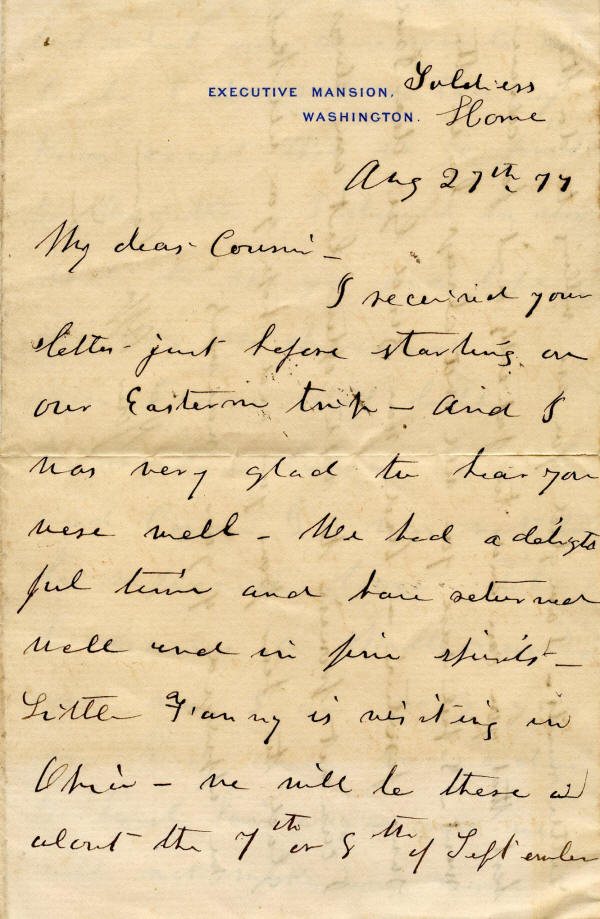 EXECUTIVE MANSION, Soldiers
WASHINGTON. Home
Aug 27th 77
My dear Cousin -
I received your
letter just before starting on
our Eastern trip - And I
was very glad to hear you
were well - We had a delight
ful time and have returned
well and in fine spirits -
Little Fanny is visiting in
Ohio - we will be there
about the 7th or 8th of September